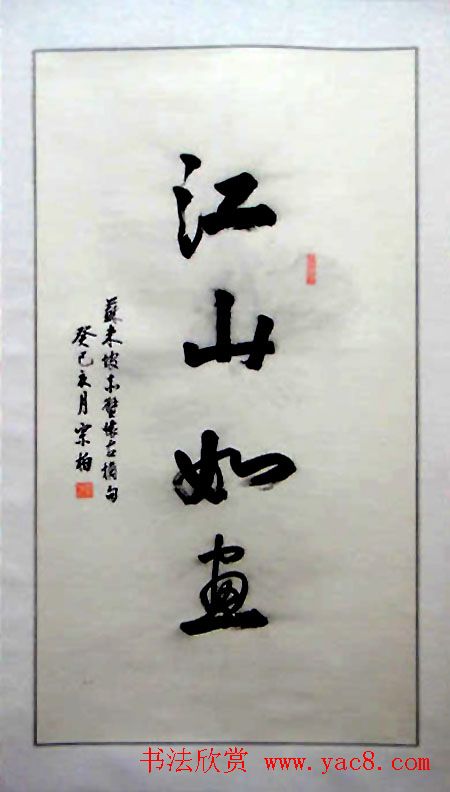 江山如画
蘇东坡赤壁懷古摘句
癸巳亥月宗柏
书法欣赏 www.yac8.com